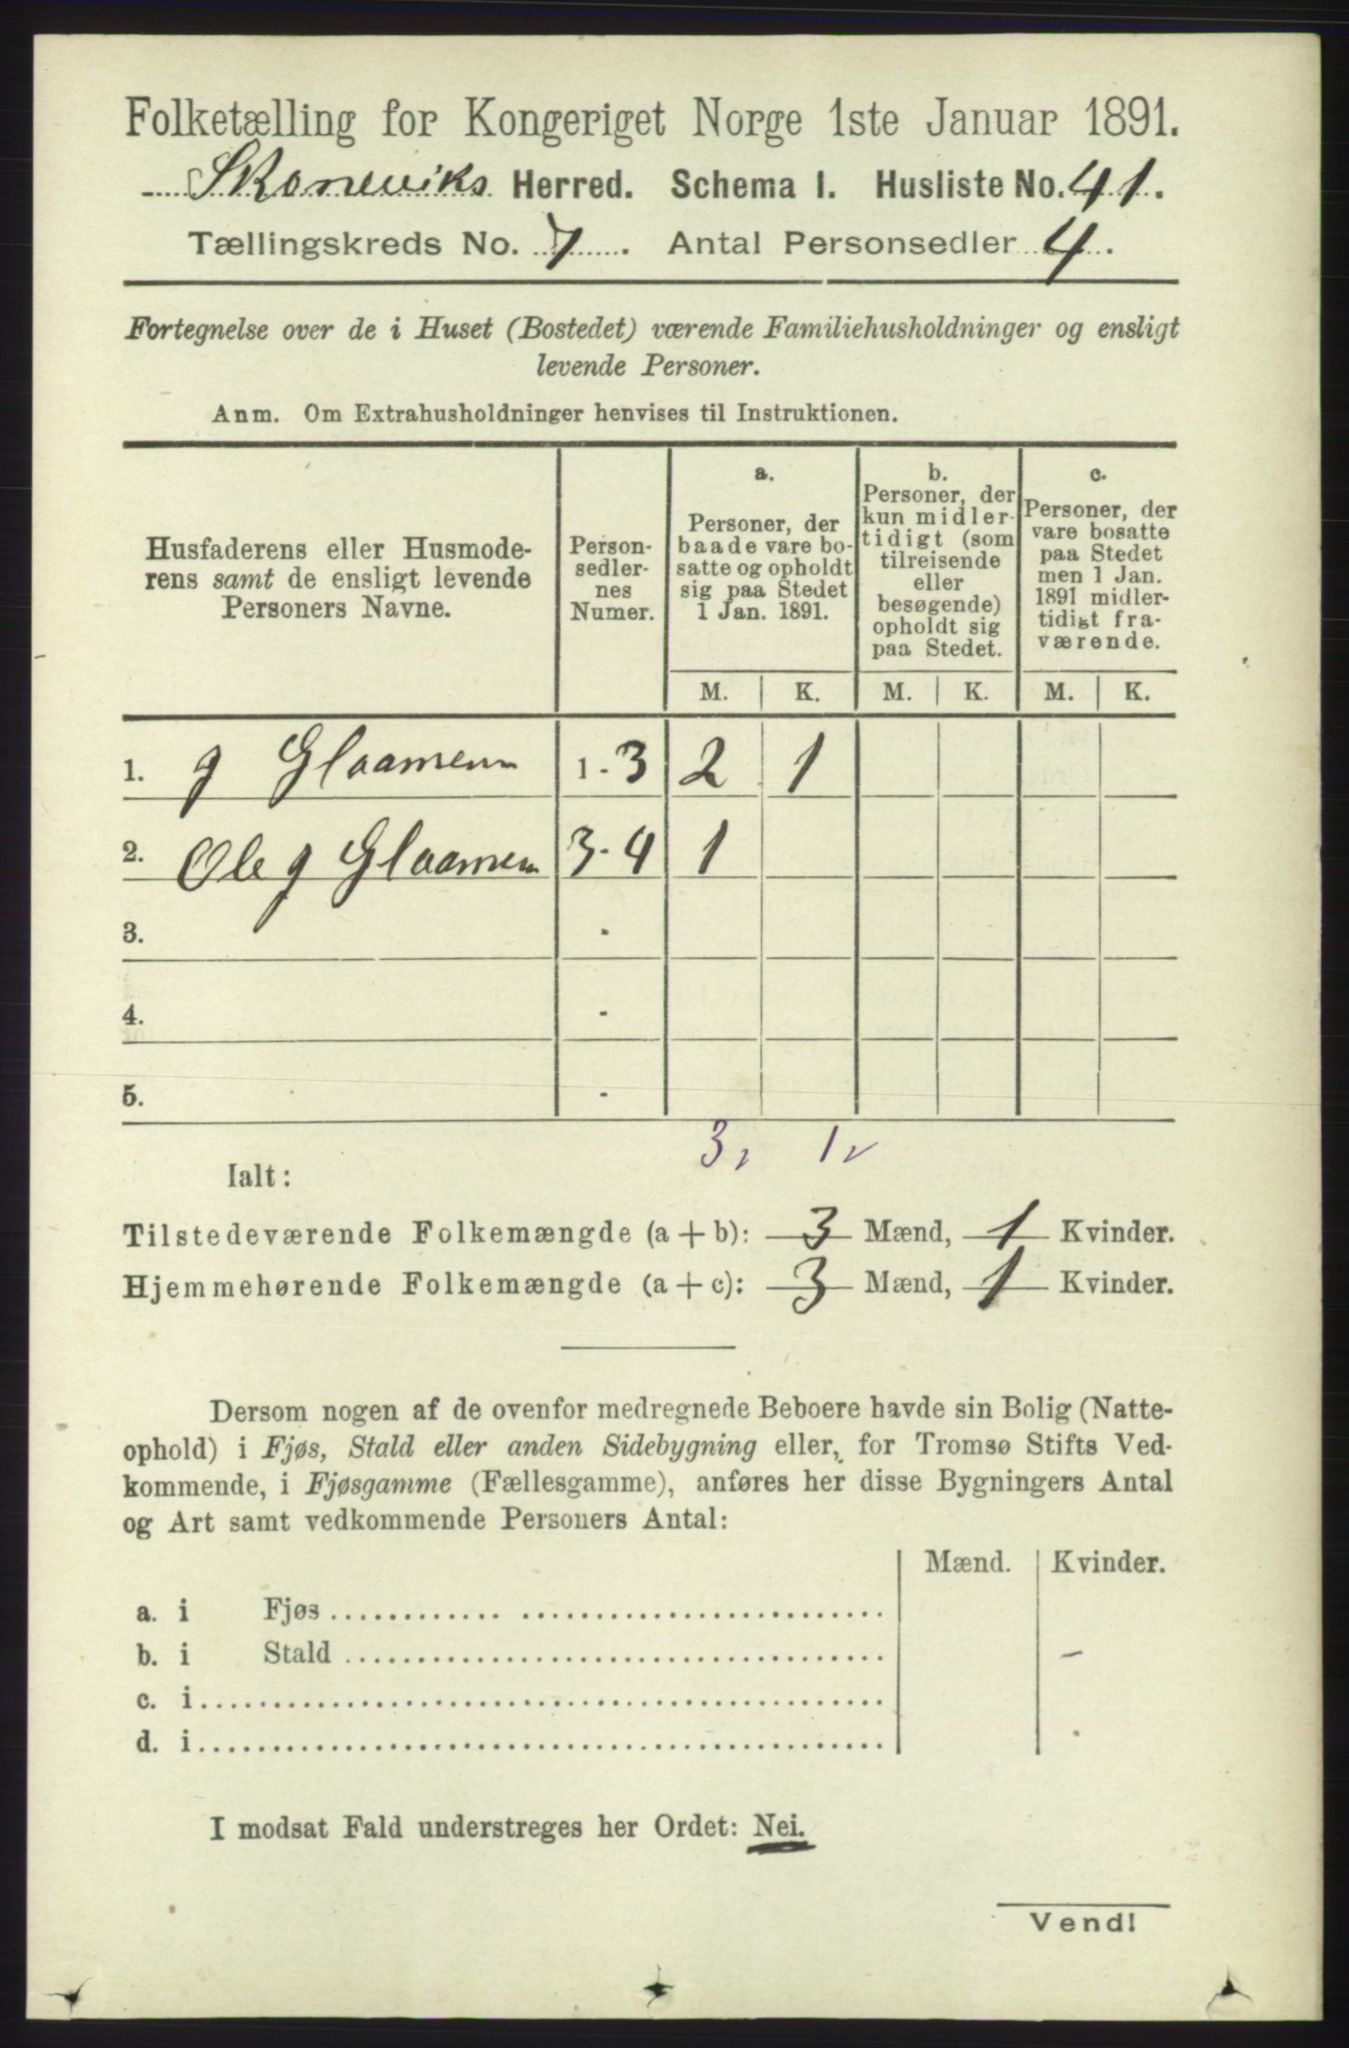 Folketælling for Kongeriget Norge 1ste Januar 1891.
Skoneviks Herred. Schema I. Husliste No. 41.
Tællingskreds No. 7. Antal Personsedler 4.
Fortegnelse over de i Huset (Bostedet) værende Familiehusholdninger og ensligt
levende Personer.
Anm. Om Extrahusholdninger henvises til Instruktionen.
Husfaderens eller Husmode-
rens samt de ensligt levende
Personers Navne.
Person-
sedler-
nes
Numer.
a.
Personer, der
baade vare bo-
satte og opholdt
sig paa Stedet
1 Jan. 1891.
b.
Personer, der
kun midler-
tidigt (som
tilreisende
eller
besøgende)
opholdt sig
paa Stedet.
c.
Personer, der
vare bosatte
paa Stedet
men 1 Jan.
1891 midler-
tidigt fra-
værende.
M. K. M. K. M. K.
1. g Glaamenn 1-3 2 1
2. Ole g Glaamen 3-4 1
3. -
4. -
5. -
3, 1
Ialt:
Tilstedeværende Folkemængde (a + b): 3 Mænd, 1 Kvinder.
Hjemmehørende Folkemængde (a + c): 3 Mænd, 1 Kvinder.
Dersom nogen af de ovenfor medregnede Beboere havde sin Bolig (Natte-
ophold) i Fjøs, Stald eller anden Sidebygning eller, for Tromsø Stifts Ved-
kommende, i Fjøsgamme (Fællesgamme), anføres her disse Bygningers Antal
og Art samt vedkommende Personers Antal:
Mænd. Kvinder.
a. i Fjøs
b. i Stald
c. i
d. i
I modsat Fald understreges her Ordet: Nei.
Vend!